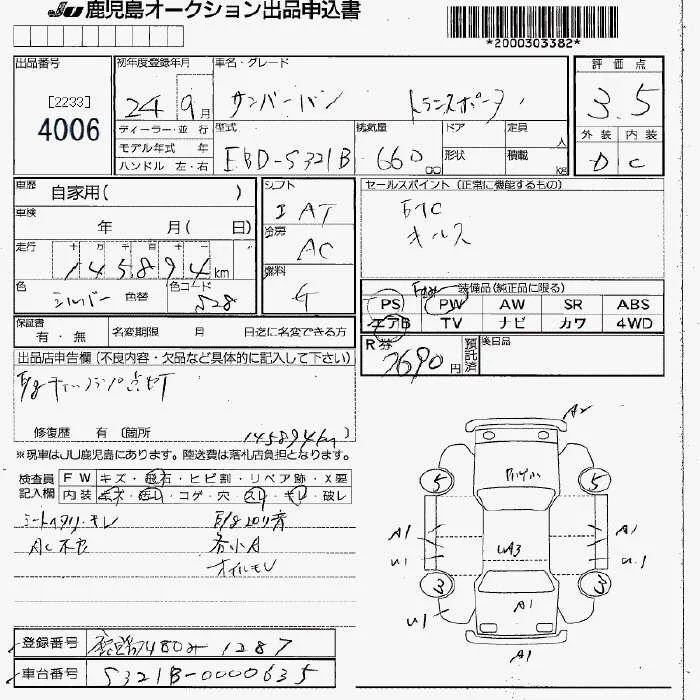 JU 鹿児島オークション出品申込書
*2000303382*
出品番号
[2233]
4006
初年度登録年月
24 9月
車名・グレード
サンバーバン トランスポーター
評価点
3.5
外装 内装
D C
ディーラー・並行
モデル年式 年
ハンドル 左・右
型式
EBD-S321B
排気量
660 cc
ドア
形状
定員 人
積載 kg
車歴
自家用( )
車検
年 月( 日)
走行
十 万 千 百 十 一
145894km
色
シルバー 色替
色コード
S28
シフト
I AT
冷房
AC
燃料
G
セールスポイント (正常に機能するもの)
ETC
キーレス
装備品(純正品に限る)
PS PW AW SR ABS
エアB TV ナビ カワ 4WD
保証書
有・無
名変期限 月 日迄に名変できる方
R券
7690円
預託済
後日品
出品店申告欄 (不良内容・欠品など具体的に記入して下さい)
E/gチェックランプ点灯
修復歴 有 (箇所
145894km)
※現車はJU鹿児島にあります。陸送費は落札店負担となります。
検査員記入欄
FW キズ・飛石・ヒビ割・リペア跡・X要
内装 キズ・汚レ・コゲ・穴・スレ・キレ・破レ
シートヘタリ・キレ E/gコロリ音
AC不良 各小A
オイルモレ
A2
5 5
A1 A1
U1 UA3 U1
3 3
U1 A1
A1
登録番号
1287
車台番号
S321B-0000635